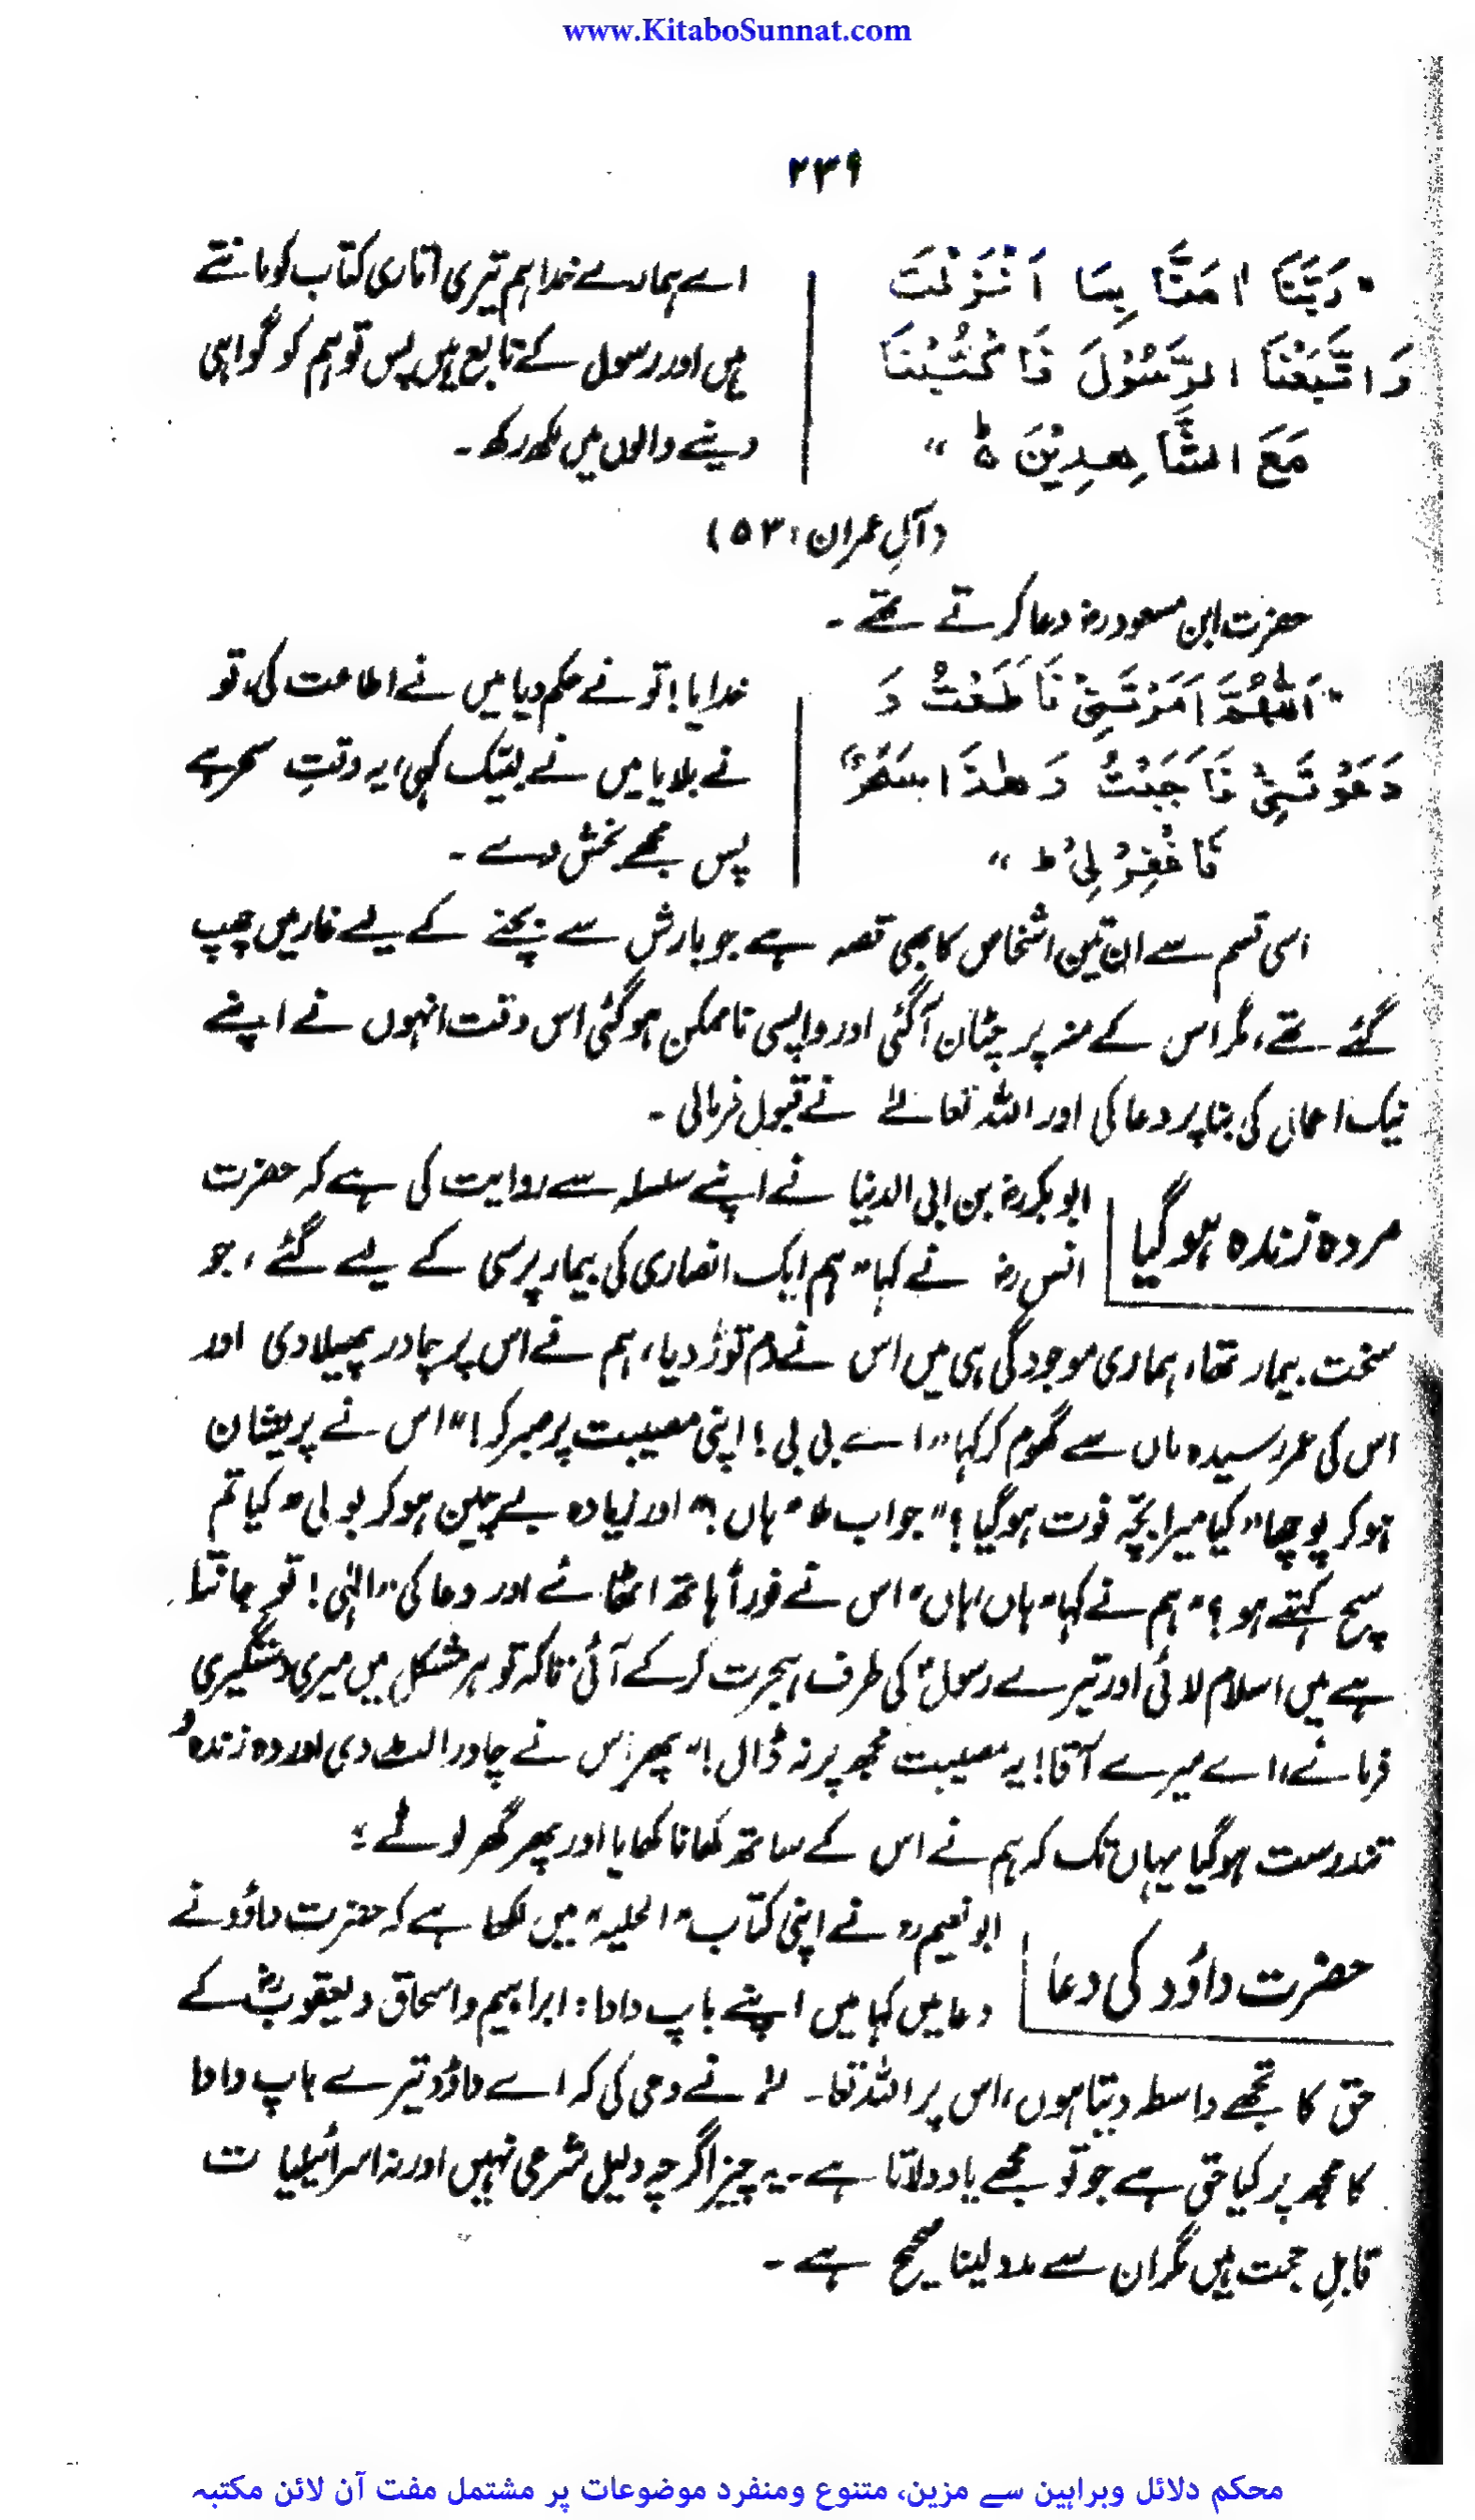 www.KitaboSunnat.com
۲۳۹
"رَبَّنَا اٰمَنَّا بِمَا اَنْزَلْتَ
وَاتَّبَعْنَا الرَّسُوْلَ فَاكْتُبْنَا
مَعَ الشَّاهِدِيْنَ ۵"
اے ہمارے خدا ہم تیری اتاری کتاب کو مانتے
ہیں اور رسول کے تابع ہیں پس تو ہم کو گواہی
دینے والوں میں لکھ رکھ۔
(آلِ عمران: ۵۳)
حضرت ابن مسعودرض دعا کرتے تھے۔
"اَللّٰهُمَّ اَمَرْتَنِيْ فَاَطَعْتُ وَ
دَعَوْتَنِيْ فَاَجَبْتُ وَهٰذَا سَحَرٌ
فَاغْفِرْ لِيْ ط"
خدایا! تو نے حکم دیا میں نے اطاعت کی، تو
نے بلایا میں نے لبیک کہی، یہ وقتِ سحر ہے
پس مجھے بخش دے۔
اسی قسم سے ان تین اشخاص کا بھی قصہ ہے جو بارش سے بچنے کے لیے غار میں چھپ
گئے تھے، مگر اس کے منہ پر چٹان آگئی اور واپسی ناممکن ہوگئی اس وقت انہوں نے اپنے
نیک اعمال کی بنا پر دعا کی اور اللہ تعالےٰ نے قبول فرمالی۔
مردہ زندہ ہوگیا
ابوبکررض بن ابی الدنیا نے اپنے سلسلہ سے روایت کی ہے کہ حضرت
انس رض نے کہا "ہم ایک انصاری کی بیمار پرسی کے لیے گئے، جو
سخت بیمار تھا، ہماری موجودگی ہی میں اس نے دم توڑ دیا، ہم نے اس پر چادر پھیلا دی اور
اس کی عمر رسیدہ ماں سے گھوم کر کہا "اے بی بی! اپنی مصیبت پر صبر کر!" اس نے پریشان
ہو کر پوچھا "کیا میرا بچّہ فوت ہوگیا؟" جواب ملا "ہاں!" اور زیادہ بے چین ہوکر بولی "کیا تم
سچ کہتے ہو؟" ہم نے کہا "ہاں ہاں" اس نے فوراً ہاتھ اٹھائے اور دعا کی "الٰہی! تو جانتا
ہے میں اسلام لائی اور تیرے رسولؐ کی طرف ہجرت کرکے آئی تاکہ تو ہر مشکل میں میری دستگیری
فرمائے، اے میرے آقا! یہ مصیبت مجھ پر نہ ڈال!" پھر اس نے چادر الٹ دی اور وہ زندہ و
تندرست ہوگیا یہاں تک کہ ہم نے اس کے ساتھ کھانا کھایا اور پھر گھر لوٹے"
حضرت داؤد کی دعا
ابونعیمرح نے اپنی کتاب "الحلیہ" میں لکھا ہے کہ حضرت داؤد نے
دعا میں کہا میں اپنے باپ دادا: ابراہیم واسحاق ویعقوبؑ کے
حق کا تجھے واسطہ دیتا ہوں، اس پر اللہ تعالےٰ نے وحی کی کہ اے داؤد تیرے باپ دادا
کا مجھ پر کیا حق ہے جو تو مجھے یاد دلاتا ہے۔ یہ چیز اگرچہ دلیل شرعی نہیں اور نہ اسرائیلیات
قابلِ حجت ہیں مگر ان سے مدد لینا صحیح ہے۔
محکم دلائل وبراہین سے مزین، متنوع ومنفرد موضوعات پر مشتمل مفت آن لائن مکتبہ